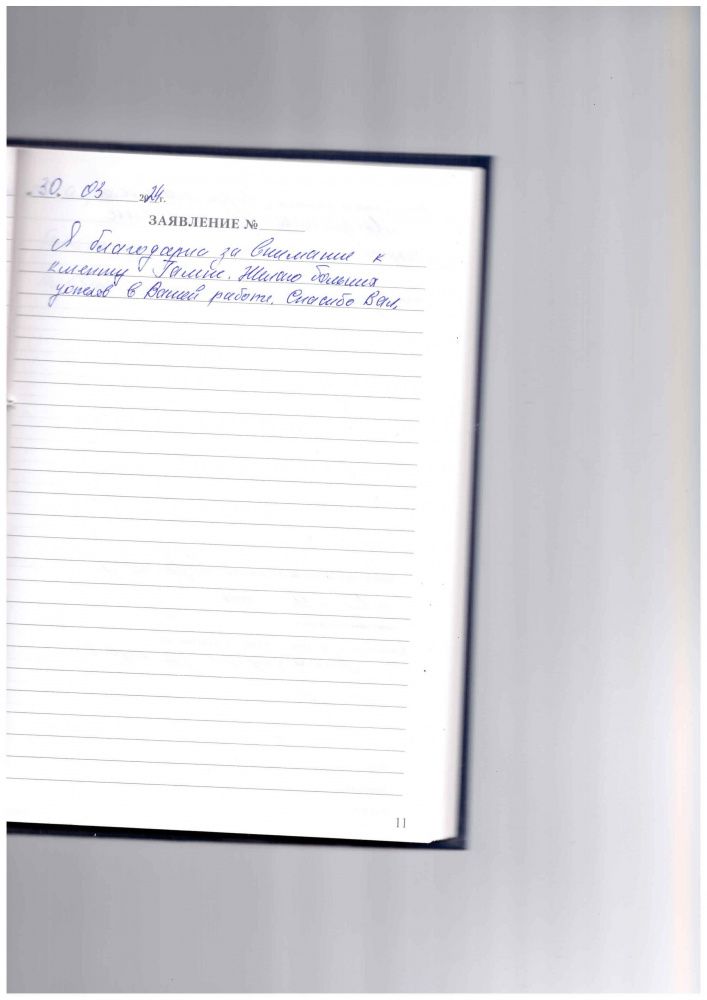 30. 03 2024 г.
ЗАЯВЛЕНИЕ №
Я благодарна за внимание к
клиенту Гамии. Желаю больших
успехов в Вашей работе. Спасибо Вам.
11